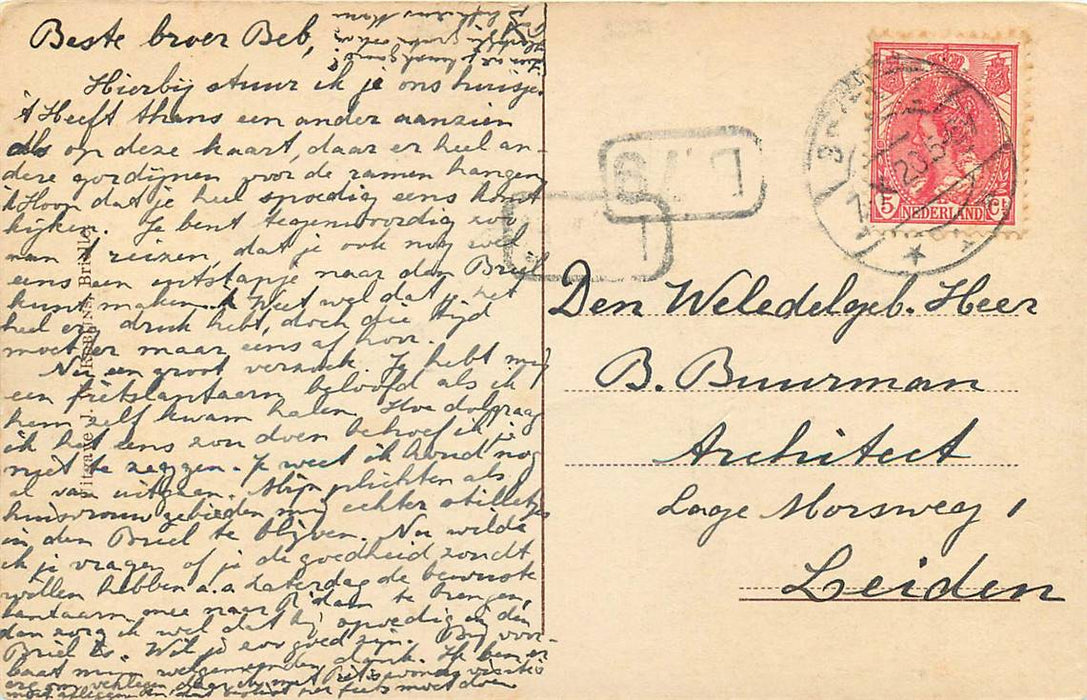 Beste broer Beb,
Hierbij stuur ik je ons huisje.
't Heeft thans een ander aanzien
als op deze kaart, daar er heel an-
dere gordijnen voor de ramen hangen
k Hoop dat je heel spoedig eens komt
kijken. Je bent tegenwoordig zoo
aan 't reizen, dat je ook nog wel
eens een uitstapje naar den Briel
kunt maken. k Weet wel dat je het
heel erg druk hebt, doch die tijd
moet er maar eens af hoor.
Nu een groot verzoek. Je hebt mij
een fietslantaarn beloofd als ik
hem zelf kwam halen. Hoe dolgraag
ik het eens zou doen behoef ik je
niet te zeggen. Je weet ik houd nog
al van uitgaan. Mijn plichten als
huisvrouw gebieden mij echter stilletjes
in den Briel te blijven. Nu wilde
ik je vragen of je de goedheid zoudt
willen hebben a.a. Zaterdag de bewuste
lantaarn mee naar R'dam te brengen,
dan zorg ik wel dat hij spoedig in den
Briel is. Wil je zoo goed zijn. Bij voor-
baat mijn welgemeenden dank. Ik ben er
erg om verlegen daar ik met
fiets moet doen
Uitgave J.
Brielle
NEDERLAND
5 Ct
20.5
Den Weledelgeb. Heer
B. Buurman
Architect
Lage Morsweg 1
Leiden